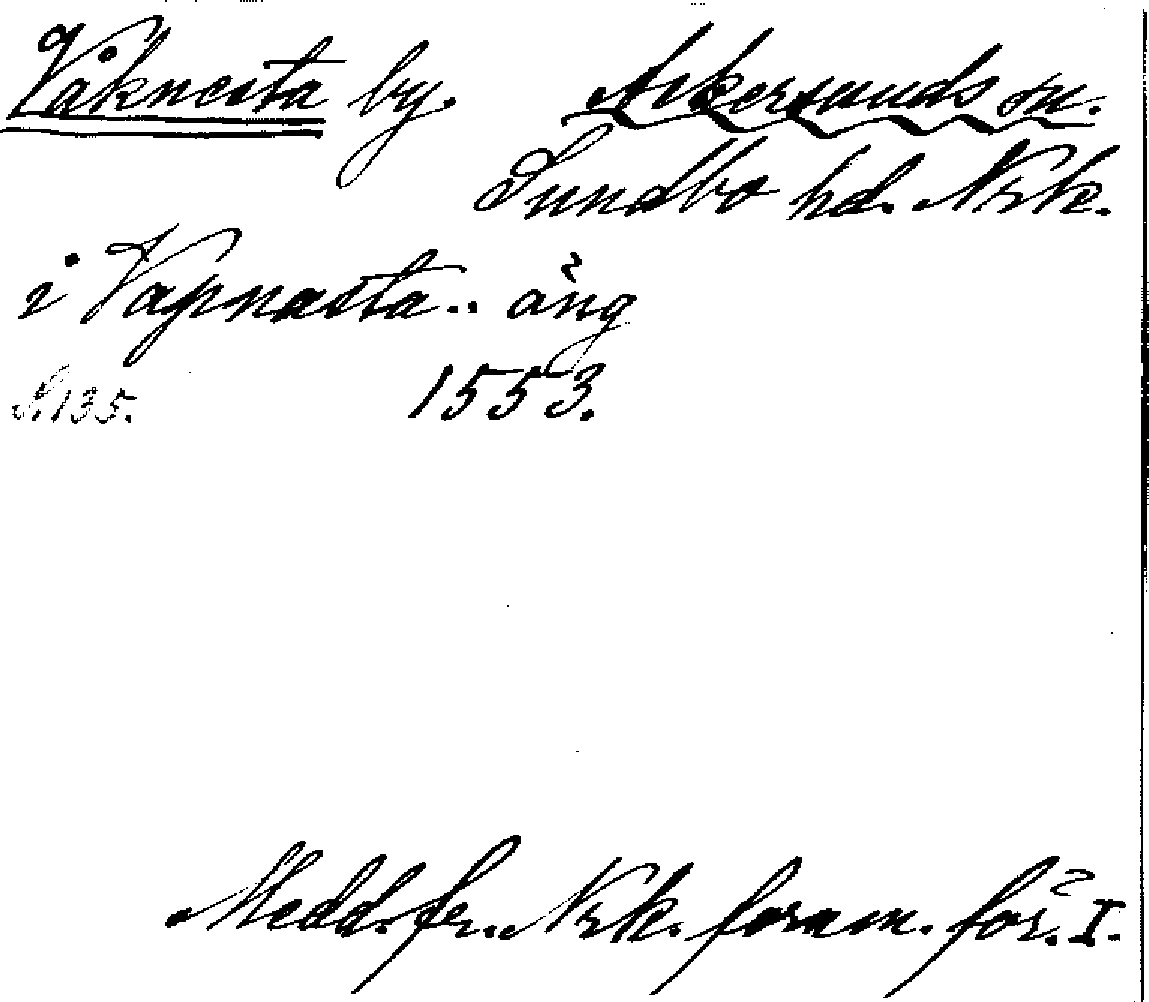 Våknesta by. Askersunds sn.
Sundbo hd. Nrk.
i Vapnasta .. äng
S. 135. 1553.
Medd. fr. Nrk. fornm. för. I.